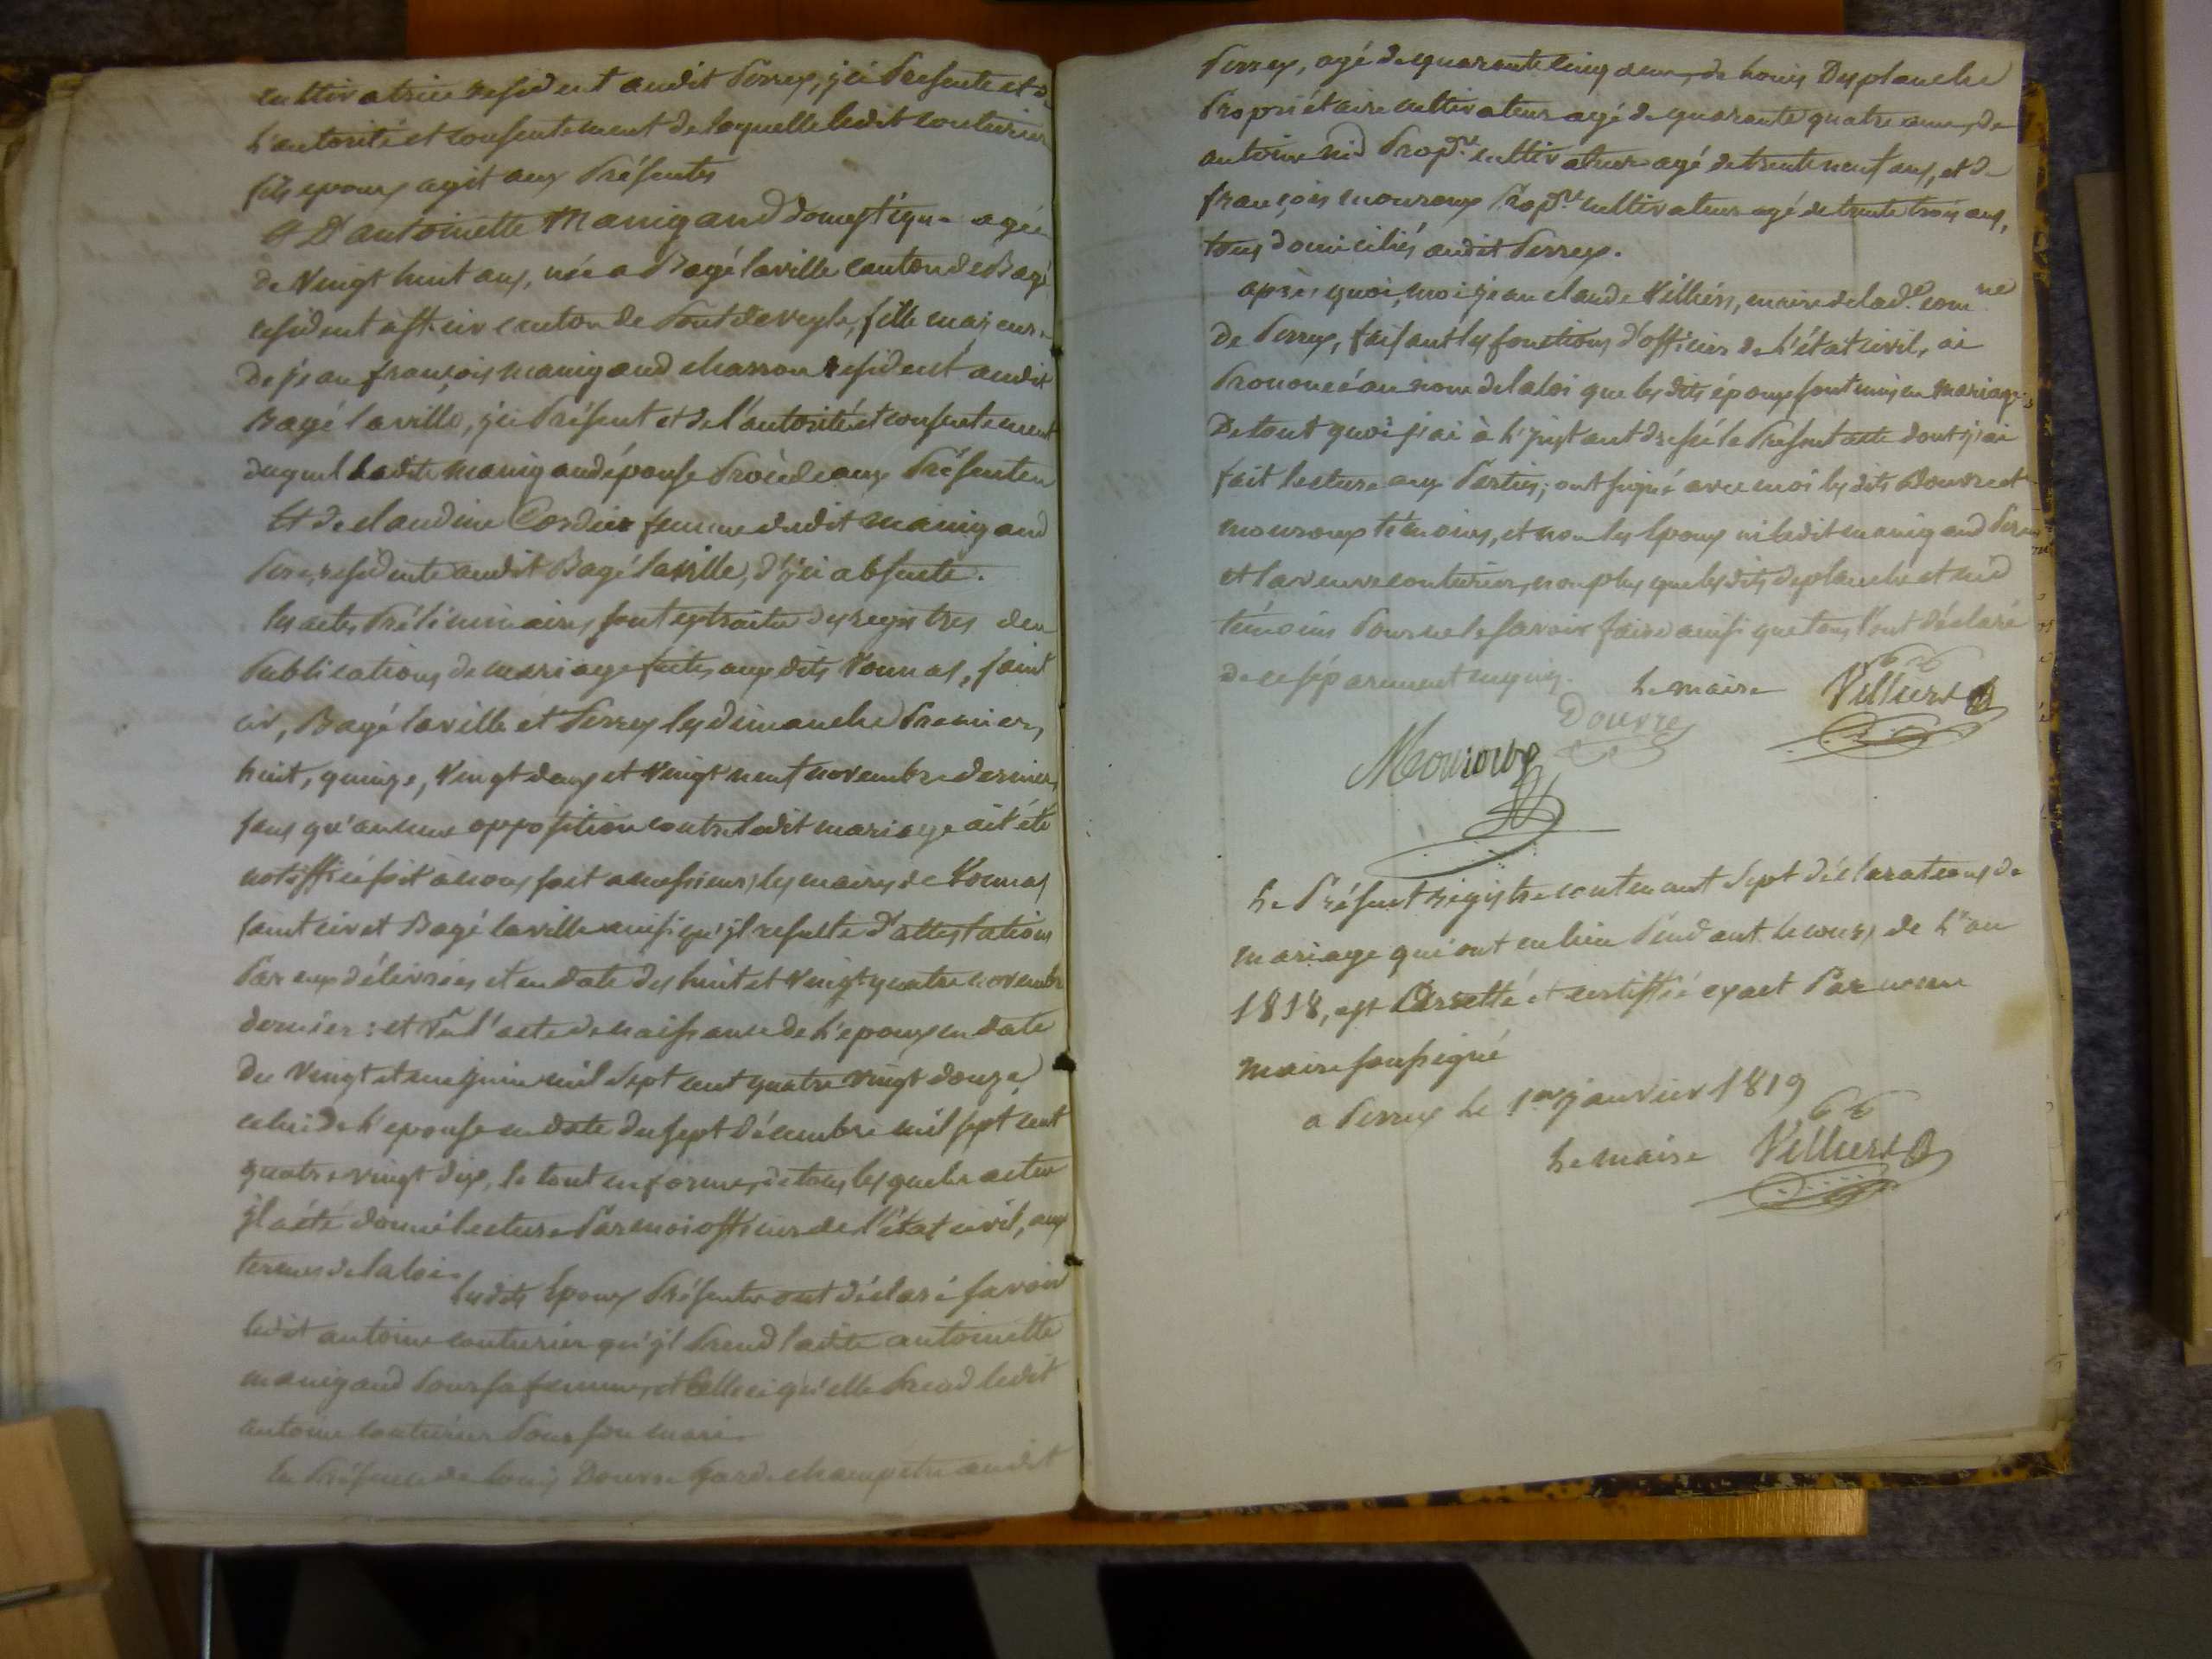 cultivatrice resident audit Perrex, ici Presente et de
l'autorité et consentement de laquelle ledit couturier
fils epoux agit aux Présentes
& D'antoinette Manigand domestique agée
de Vingt huit ans, née a Bagé laville canton de Bagé
resident a St. cir canton de Pontdeveyle, fille majeure
de jean françois manigand charron resident audit
Bagé laville, ici Présent et de l'autorité et consentement
duquel ladite manigand épouse Procède aux Présentes
Et de claudine Cordier femme dudit manigand
Pere, residente audit Bagé laville, d'ici absente.
les actes Préliminaires sont extraits des registres des
Publications de mariage faites aux dits Vonnas, saint
cir, Bagé laville et Perrex les dimanche Premier,
huit, quinze, Vingt deux et Vingt neuf novembre dernier
sans qu'aucune opposition contre ledit mariage ait été
notiffiée soit à nous soit a messieurs les maires de Vonnas
saint cir et Bagé laville ainsi qu'il resulte d'attestations
Par eux délivrées et en date des huit et Vingt quatre novembre
dernier : et Vu l'acte de naissance de l'epoux en date
du Vingt et un juin mil sept cent quatre vingt douze
celui de l'epouse en date du sept décembre mil sept cent
quatre vingt dix, le tout en forme, de tous les quels actes
il a été donné lecture Par moi officier de l'état civil, aux
termes de la loi.
lesdits Epoux Présents ont déclaré savoir
ledit antoine couturier qu'il Prend ladite antoinette
manigand Pour sa femme, et Celle ci qu'elle Prend ledit
antoine couturier Pour son mari.
En Présence de Louis Douvre Garde champêtre audit
Perrex, agé de quarante cinq ans, de Louis Desplanche
Propriétaire cultivateur agé de quarante quatre ans, de
antoine nid Prop.re cultivateur agé de trente neuf ans, et de
françois mouroux Prop.re cultivateur agé de trente trois ans,
tous domiciliés audit Perrex.
après quoi, moi jean claude Villiers, maire de lad.e comne
De Perrex, faisant les fonctions d'officier de l'état civil, ai
Prononcé au nom de la loi que les dits époux sont unis en mariage
De tout quoi j'ai à l'instant dressé le Présent acte dont j'ai
fait lecture aux Parties ; ont signé avec moi les dits Douvre et
mouroux témoins, et non les Epoux ni ledit manigand Pere
et la veuve couturier, non plus que les dits desplanche et nid
témoins Pour ne le savoir faire ainsi que tous l'ont déclaré
de ce séparément enquis.
Le maire Villiers
Douvre
Mouroux
Le Présent registre contenant Sept déclarations de
mariage qui ont eu lieu Pendant le cours de L'an
1818, est Arretté et certiffié exact Par nous
maire soussigné
a Perrex le 1er janvier 1819
Le maire Villiers